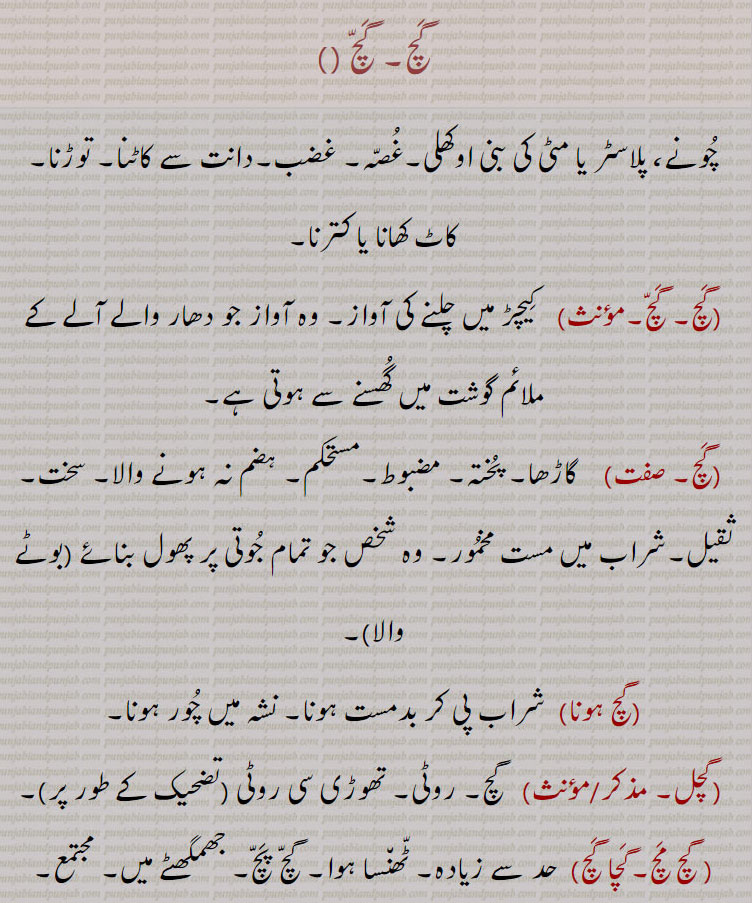 گَچ۔ گَچّ ()
چُونے، پلاسٹر یا مٹی کی بنی اوکھلی۔غُصّہ۔ غضب۔دانت سے کاٹنا۔ توڑنا۔
کاٹ کھانا یا کترنا۔
(گَچ۔ گَچّ۔مؤنث) کیچڑ میں چلنے کی آواز۔ وہ آواز جو دھار والے آلے کے
ملائم گوشت میں گُھسنے سے ہوتی ہے۔
(گَچ۔ صفت) گاڑھا۔ پُختہ۔ مضبوط۔مستحکم۔ ہضم نہ ہونے والا۔ سخت۔
ثقیل۔شراب میں مست مخمُور۔ وہ شخص جو تمام جُوتی پر پھول بنائے (بوٹے
والا)۔
(گچ ہونا) شراب پی کر بدمست ہونا۔ نشہ میں چُور ہونا۔
(گچل۔ مذکر/مؤنث) گچ۔ روٹی۔ تھوڑی سی روٹی (تضحیک کے طور پر)۔
(گچ مَچ۔گَچَا گَچ) حد سے زیادہ۔ ٹھنسا ہوا۔ گچّ پَچّ۔ جھمگھٹے میں۔ مجتمع۔